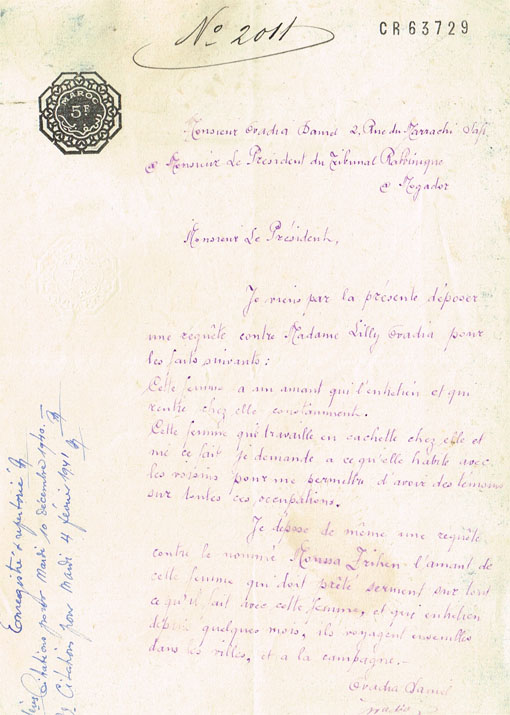 No 2011
CR63729
MAROC
5F
Monsieur Ovadia David 2, Rue du Marrachi Safi
à Monsieur Le Président du Tribunal Rabbinique
à Mogador
Monsieur Le Président,
Je viens par la présente déposer
une requête contre Madame Lilly Ovadia pour
les faits suivants :
Cette femme a am amant qui l'entretien et qui
rentre chez elle constamment.
Cette femme que travaille en cachette chez elle et
me ce fait je demande a ce qu'elle habite avec
les voisins pour me permettre d'avoir des témoins
sur toutes ces occupations.
Je dépose de même une requête
contre le nommé Moussa l'amant de
cette femme qui doit prêté serment sur tout
ce qu'il fait avec cette femme, et qui entretien
depuis quelques mois, ils voyagent ensemble
dans les villes, et a la campagne.-
Ovadia David
Enregistré & répertorié
Citations pour Mardi 10 décembre 1940.-
Citation pour Mardi 4 février 1941